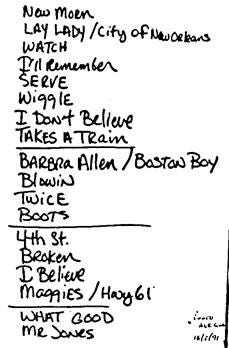 New Morn
LAY LADY/City of New Orleans
WATCH
I'll Remember
SERVE
Wiggle
I Don't Believe
TAKES A Train
BARBRA Allen / BOSTON BOY
Blowin
TWICE
BOOTS
4th St.
Broken
I Believe
Maggies / Hwy 61
WHAT GOOD
Mr Jones